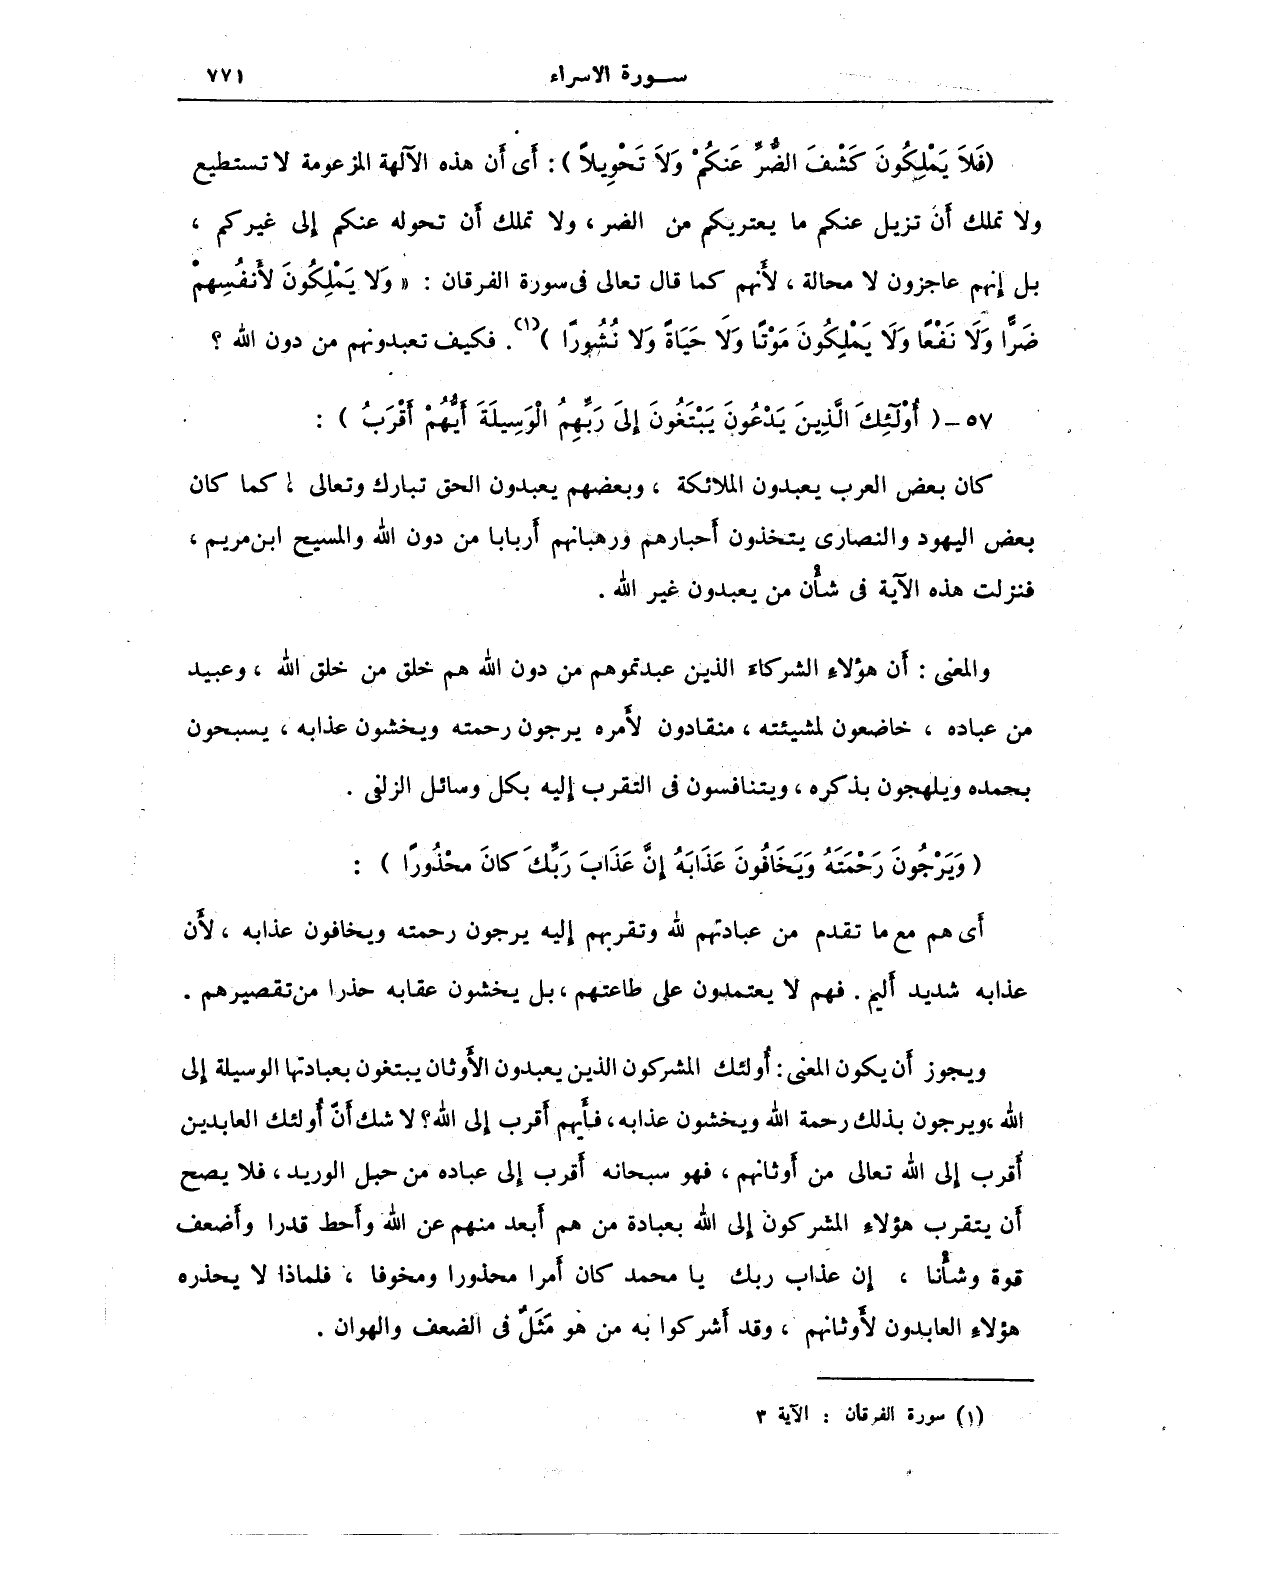 سورة الاسراء ٧٧١
(فَلاَ يَمْلِكُونَ كَشْفَ الضُّرِّ عَنكُمْ وَلاَ تَحْوِيلاً ) : أَى أَن هذه الآلهة المزعومة لا تستطيع
ولا تملك أَن تزيل عنكم ما يعتريكم من الضر ، ولا تملك أَن تحوله عنكم إلى غيركم ،
بل إنهم عاجزون لا محالة ، لأَنهم كما قال تعالى فى سورة الفرقان : « وَلَا يَمْلِكُونَ لأَنفُسِهِمْ
ضَرًّا وَلَا نَفْعًا وَلَا يَمْلِكُونَ مَوْتًا وَلَا حَيَاةً وَلا نُشُورًا )(١) . فكيف تعبدونهم من دون الله ؟
٥٧ - ( أُوْلَٰٓئِكَ الَّذِينَ يَدْعُونَ يَبْتَغُونَ إِلَىَ رَبِّهِمُ الْوَسِيلَةَ أَيُّهُمْ أَقْرَبُ ) :
كان بعض العرب يعبدون الملائكة ، وبعضهم يعبدون الحق تبارك وتعالى ، كما كان
بعض اليهود والنصارى يتخذون أَحبارهم ورهبانهم أَربابا من دون الله والمسيح ابن مريم ،
فنزلت هذه الآية فى شأْن من يعبدون غير الله .
والمعنى : أَن هؤلاءِ الشركاءَ الذين عبدتموهم من دون الله هم خلق من خلق الله ، وعبيد
من عباده ، خاضعون لمشيئته ، منقادون لأَمره يرجون رحمته ويخشون عذابه ، يسبحون
بحمده ويلهجون بذكره ، ويتنافسون فى التقرب إليه بكل وسائل الزلفى .
( وَيَرْجُونَ رَحْمَتَهُ وَيَخَافُونَ عَذَابَهُ إِنَّ عَذَابَ رَبِّكَ كَانَ محْذُورًا ) :
أَى هم مع ما تقدم من عبادتهم لله وتقربهم إليه يرجون رحمته ويخافون عذابه ، لأَن
عذابه شديد أَليم . فهم لا يعتمدون على طاعتهم ، بل يخشون عقابه حذرا من تقصيرهم .
ويجوز أَن يكون المعنى : أُولئك المشركون الذين يعبدون الأَوثان يبتغون بعبادتها الوسيلة إلى
الله ، ويرجون بذلك رحمة الله ويخشون عذابه ، فأَيهم أَقرب إلى الله ؟ لا شك أَنّ أُولئك العابدين
أَقرب إلى الله تعالى من أَوثانهم ، فهو سبحانه أَقرب إلى عباده من حبل الوريد ، فلا يصح
أَن يتقرب هؤلاءِ المشركون إلى الله بعبادة من هم أَبعد منهم عن الله وأَحط قدرا وأَضعف
قوة وشأْنا ، إن عذاب ربك يا محمد كان أَمرا محذورا ومخوفا ، فلماذا لا يحذره
هؤلاءِ العابدون لأَوثانهم ، وقد أَشركوا به من هو مَثَلٌ فى الضعف والهوان .
(١) سورة الفرقان : الآية ٣